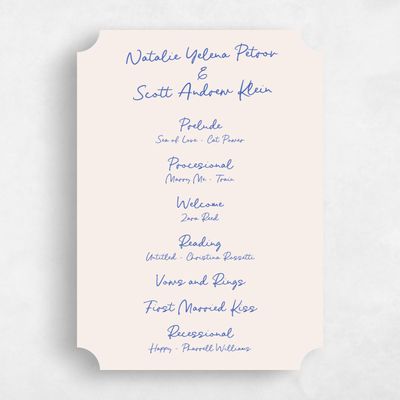 Natalie Yelena Petrov
&
Scott Andrew Klein
Prelude
Sea of Love - Cat Power
Procesional
Marry Me - Train
Welcome
Zara Reed
Reading
Untitled - Christina Rossetti
Vows and Rings
First Married Kiss
Recessional
Happy - Pharrell Williams